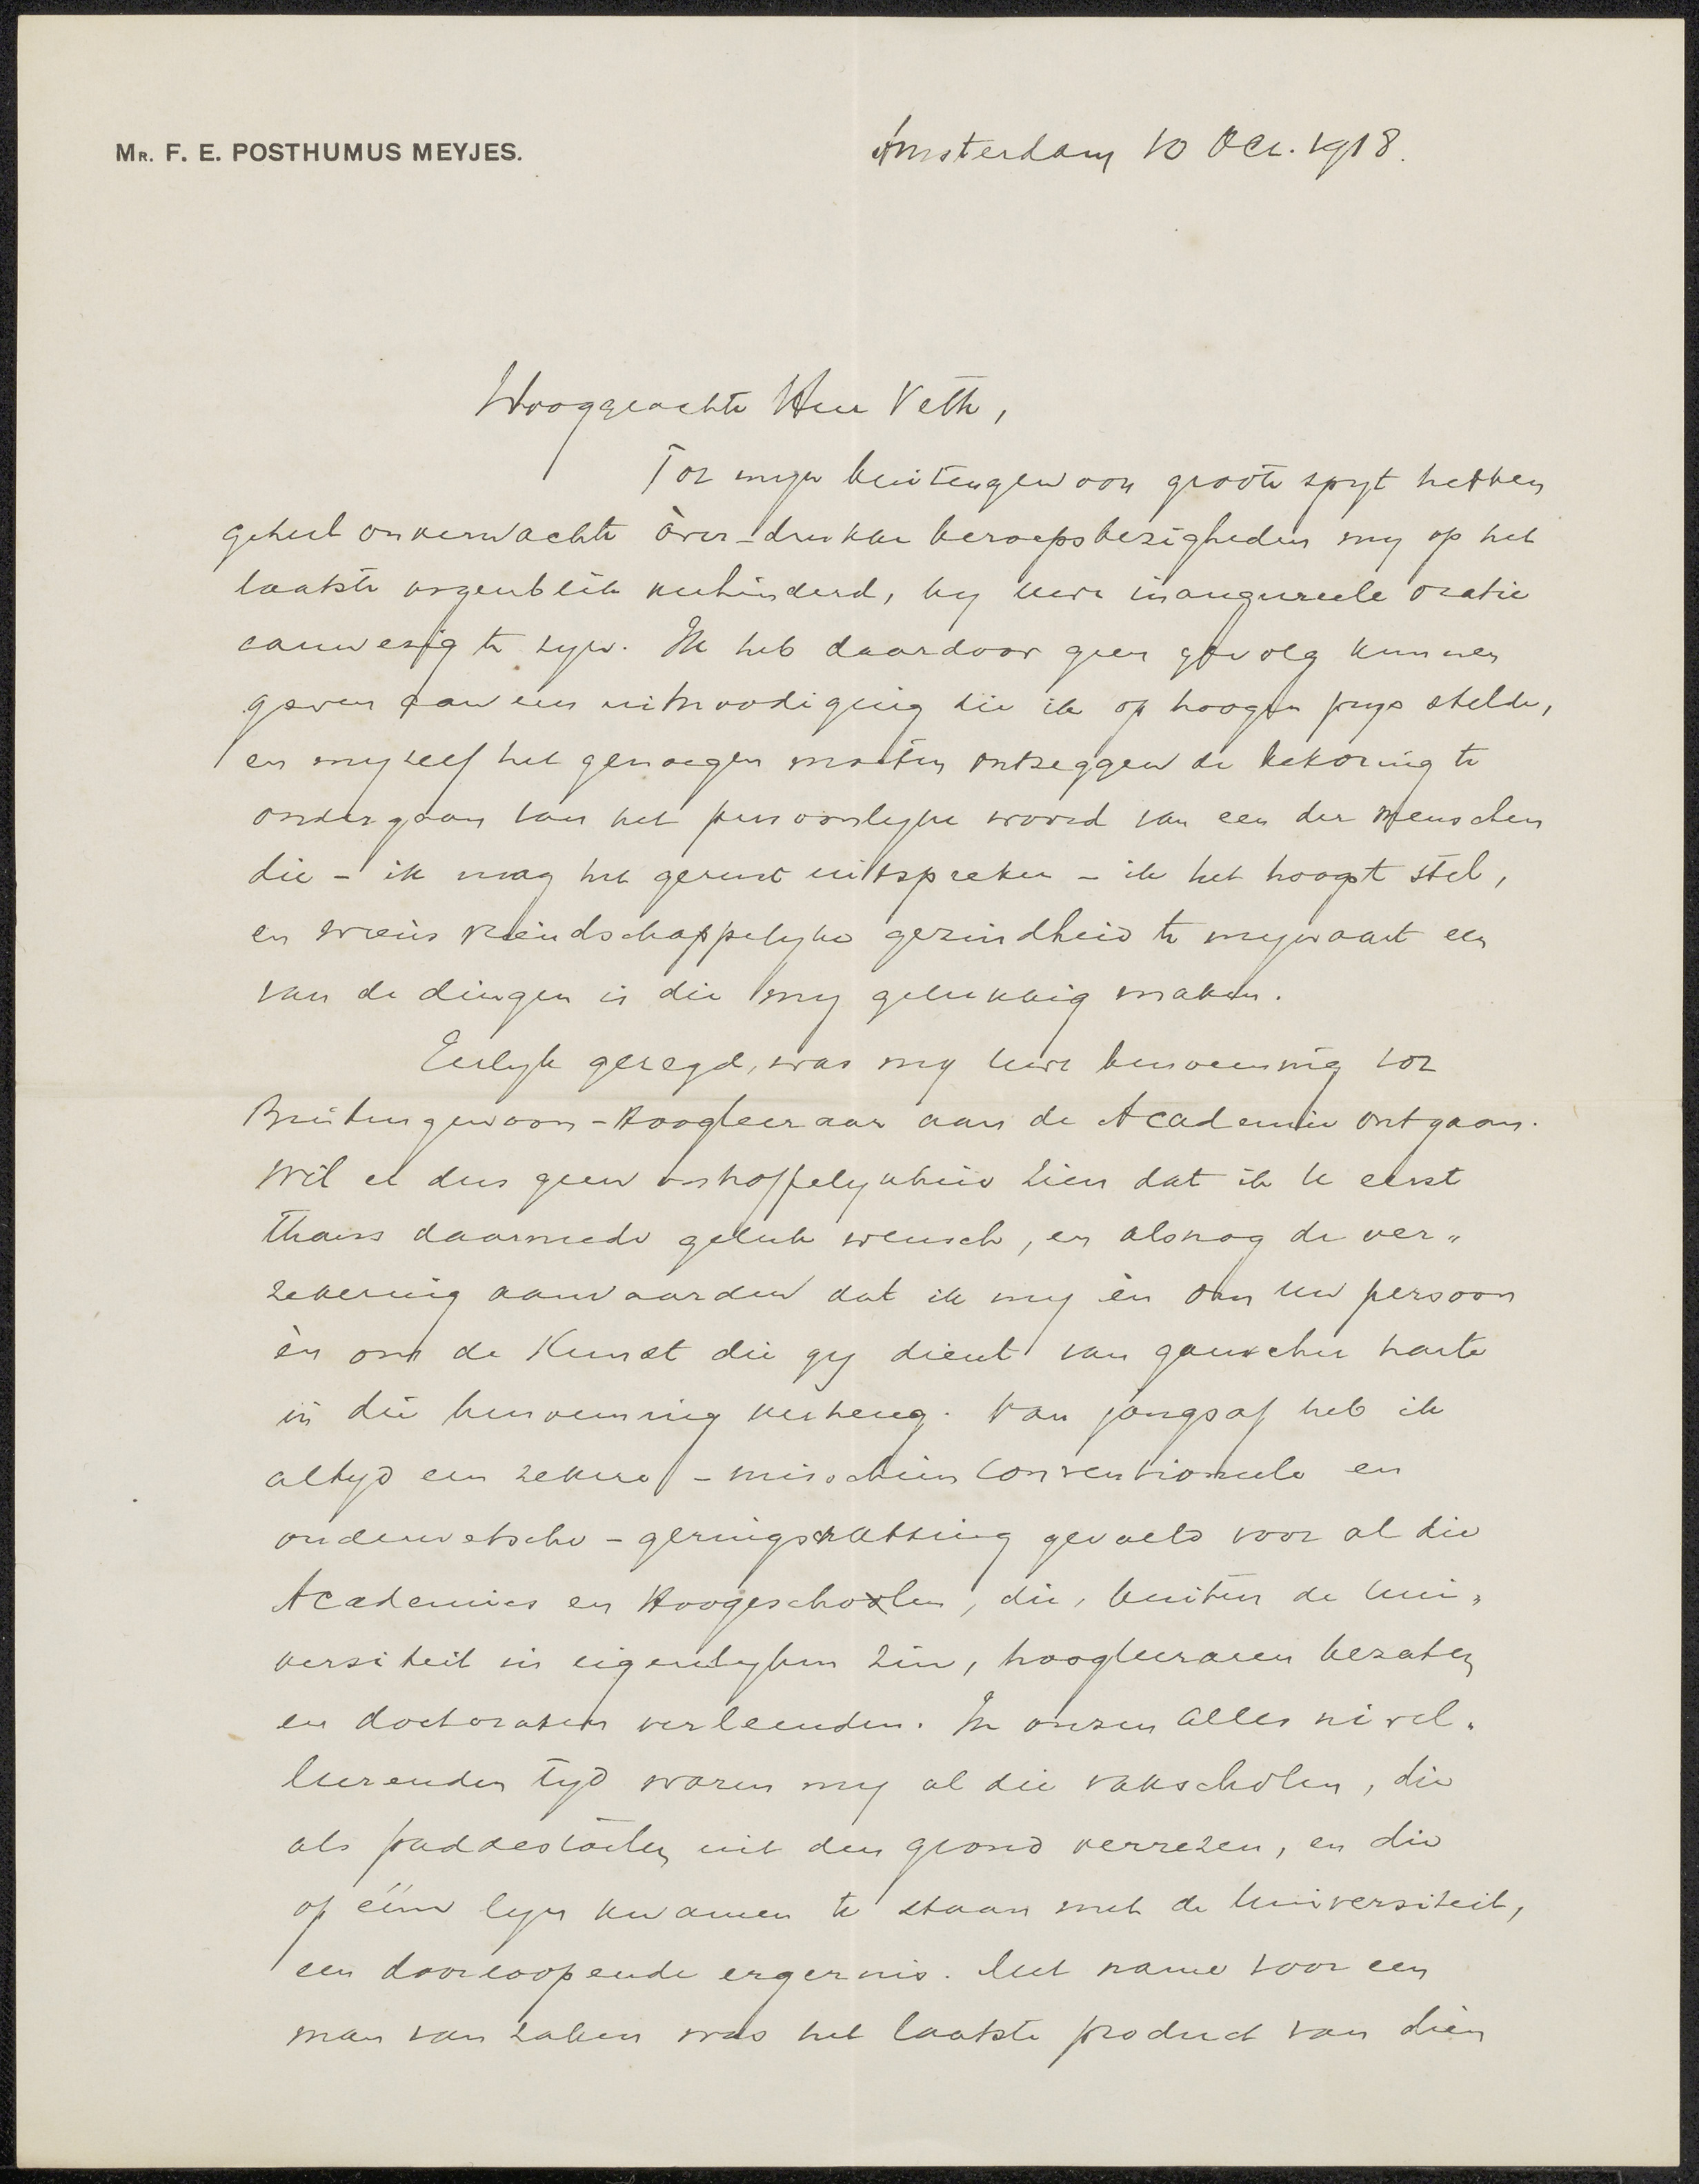 MR. F. E. POSTHUMUS MEYJES.
Amsterdam 10 Oct. 1918.
Hooggeachte Heer Veth,
Tot mijn buitengewoon groote spyt hebben
geheel onverwachte òver-drukke beroepsbezigheden my op het
laatste oogenblik verhinderd, by uwe inaugureele oratie
aanwezig te zyn. Ik heb daardoor geen gevolg kunnen
geven aan een uitnoodiging die ik op hoogen prys stelde,
en myzelf het genoegen moeten ontzeggen de bekoring te
ondergaan van het persoonlyke woord van een der menschen
die - ik mag het gerust uitspreken - ik het hoogst stel,
en wiens vriendschappelyke gezindheid te mywaart een
van de dingen is die my gelukkig maken.
Eerlyk gezegd, was my uwe benoeming tot
Buitengewoon-Hoogleeraar aan de Academie ontgaan.
Wil er dus geen onhoffelykheid zien dat ik U eerst
thans daarmede geluk wensch, en alsnog de ver„
zekering aanvaarden dat ik my èn om uw persoon
èn om de Kunst die gy dient van ganscher harte
in die benoeming verheug. Van jongsaf heb ik
altyd een zekere - misschien conventioneele en
ouderwetsche - geringschatting gevoeld voor al die
Academies en Hoogescholen, die, buiten de Uni„
versiteit in eigenlyken zin, hoogleeraren bezaten
en doctoraten verleenden. In onzen alles nivel„
leerenden tyd waren my al die vakscholen, die
als paddestoelen uit den grond verrezen, en die
op één lyn kwamen te staan met de Universiteit,
een doorloopende ergernis. Met name voor een
man van zaken was het laatste product van dien